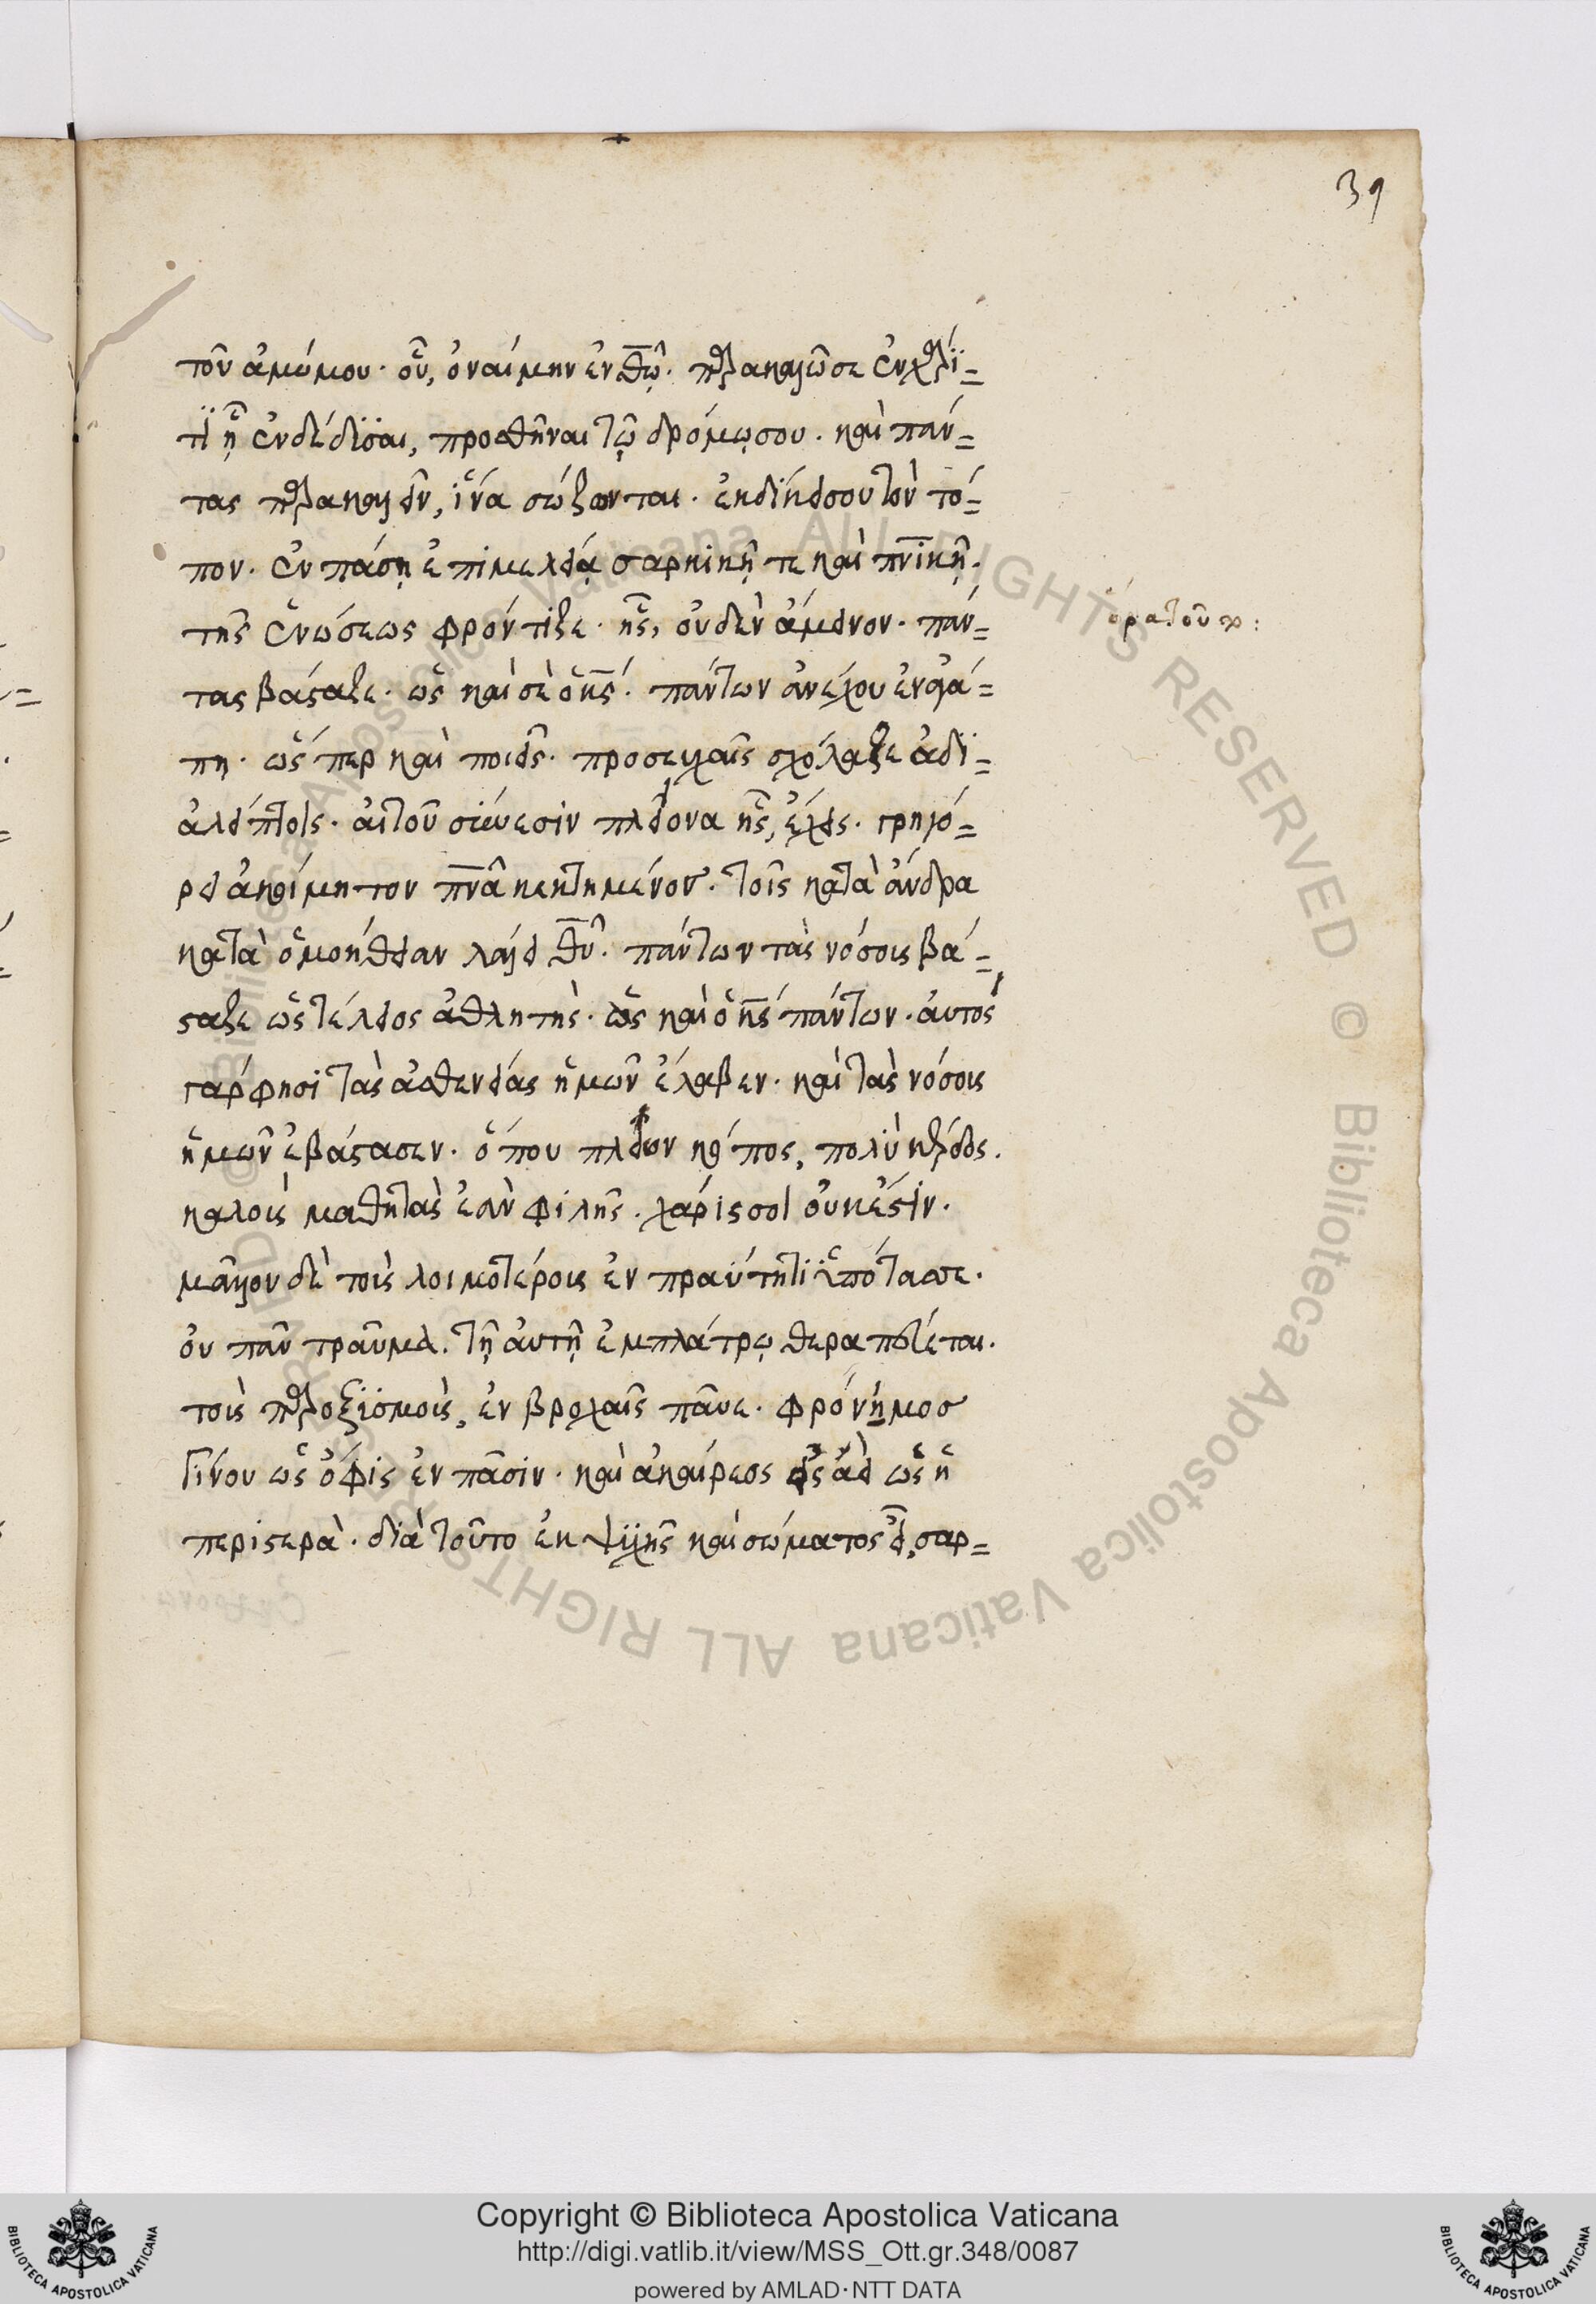 39
τοῦ ἀμώμου· οὗ, ὀναίμην ἐν θ̅ω̅· παρακαλῶ σε ἐν χάρι=
τι ᾗ ἐνδέδυσαι, προσθῆναι τῷ δρόμῳ σου· καὶ πάν=
τας παρακαλεῖν, ἵνα σώζωνται· ἐκδίκει σου τὸν τό=
πον· ἐν πάσῃ ἐπιμελείᾳ σαρκικῇ τε καὶ πν̅ικῇ·
τῆς ἑνώσεως φρόντιζε· ἧς, οὐδὲν ἄμεινον· πάν=
ὅρα τοῦ
τας βάσταζε· ὡς καὶ σὲ ὁ κ̅ς̅· πάντων ἀνέχου ἐν ἀγά=
πῃ· ὥσπερ καὶ ποιεῖς· προσευχαῖς σχόλαζε ἀδι=
αλείπτοις· αἰτοῦ σύνεσιν πλείονα ἧς, ἔχεις· γρηγό=
ρει ἀκοίμητον πν̅α̅ κεκτημένος· τοῖς κατὰ ἄνδρα
κατὰ ὁμοήθειαν λάλει θ̅υ̅· πάντων τὰς νόσους βά=
σταζε ὡς τέλειος ἀθλητής· ὡς καὶ ὁ κ̅ς̅ πάντων· αὐτός
γάρ φησι τὰς ἀσθενείας ἡμῶν ἔλαβεν· καὶ τὰς νόσους
ἡμῶν ἐβάστασεν· ὅπου πλείων κόπος, πολὺ κέρδος·
καλοὺς μαθητὰς ἐὰν φιλῇς· χάρις σοι οὐκ ἔστιν·
μᾶλλον δὲ τοὺς λοιμοτέρους ἐν πραΰτητι ὑπότασσε·
οὐ πᾶν τραῦμα· τῇ αὐτῇ ἐμπλάστρῳ θεραπεύεται·
τοὺς παροξυσμοὺς, ἐν βροχαῖς παῦε· φρόνημος
γίνου ὡς ὄφις ἐν πᾶσιν· καὶ ἀκαίρεος εἰς ἀεὶ ὡς ἡ
περιστερά· διὰ τοῦτο ἐκ ψυχῆς καὶ σώματος εἶ, σαρ=
Copyright © Biblioteca Apostolica Vaticana
http://digi.vatlib.it/view/MSS_Ott.gr.348/0087
powered by AMLAD·NTT DATA
BIBLIOTECA APOSTOLICA VATICANA
BIBLIOTECA APOSTOLICA VATICANA
© Biblioteca Apostolica Vaticana ALL RIGHTS RESERVED © Biblioteca Apostolica Vaticana ALL RIGHTS RESERVED